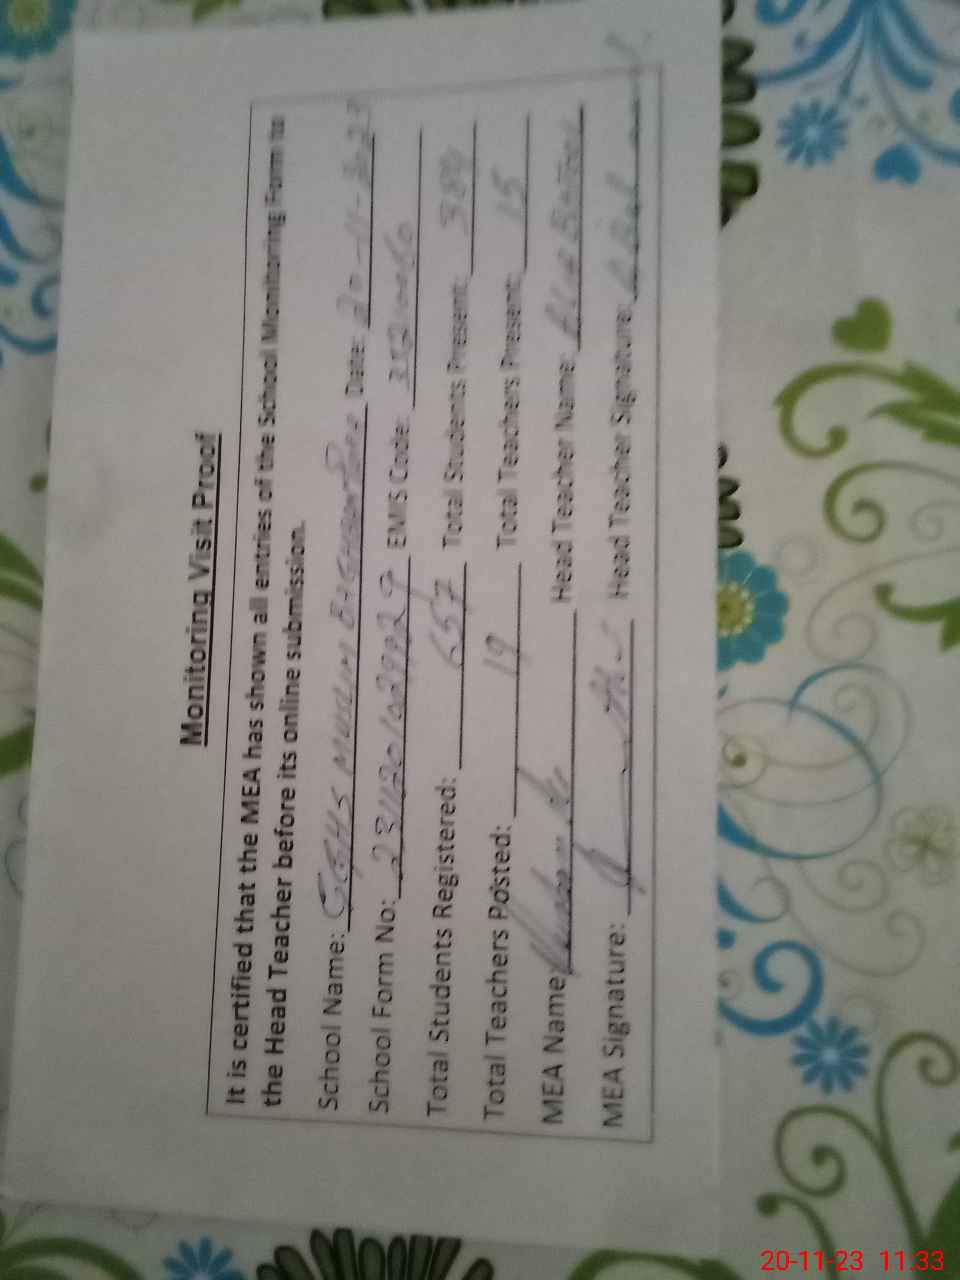 Monitoring Visit Proof
It is certified that the MEA has shown all entries of the School Monitoring Form to
the Head Teacher before its online submission.
School Name: GGHS Muslim Date: 20-11-2023
School Form No: EMIS Code:
Total Students Registered: 657 Total Students Present: 389
Total Teachers Posted: 19 Total Teachers Present: 15
MEA Name Head Teacher Name:
MEA Signature: Head Teacher Signature:
20-11-23 11.33